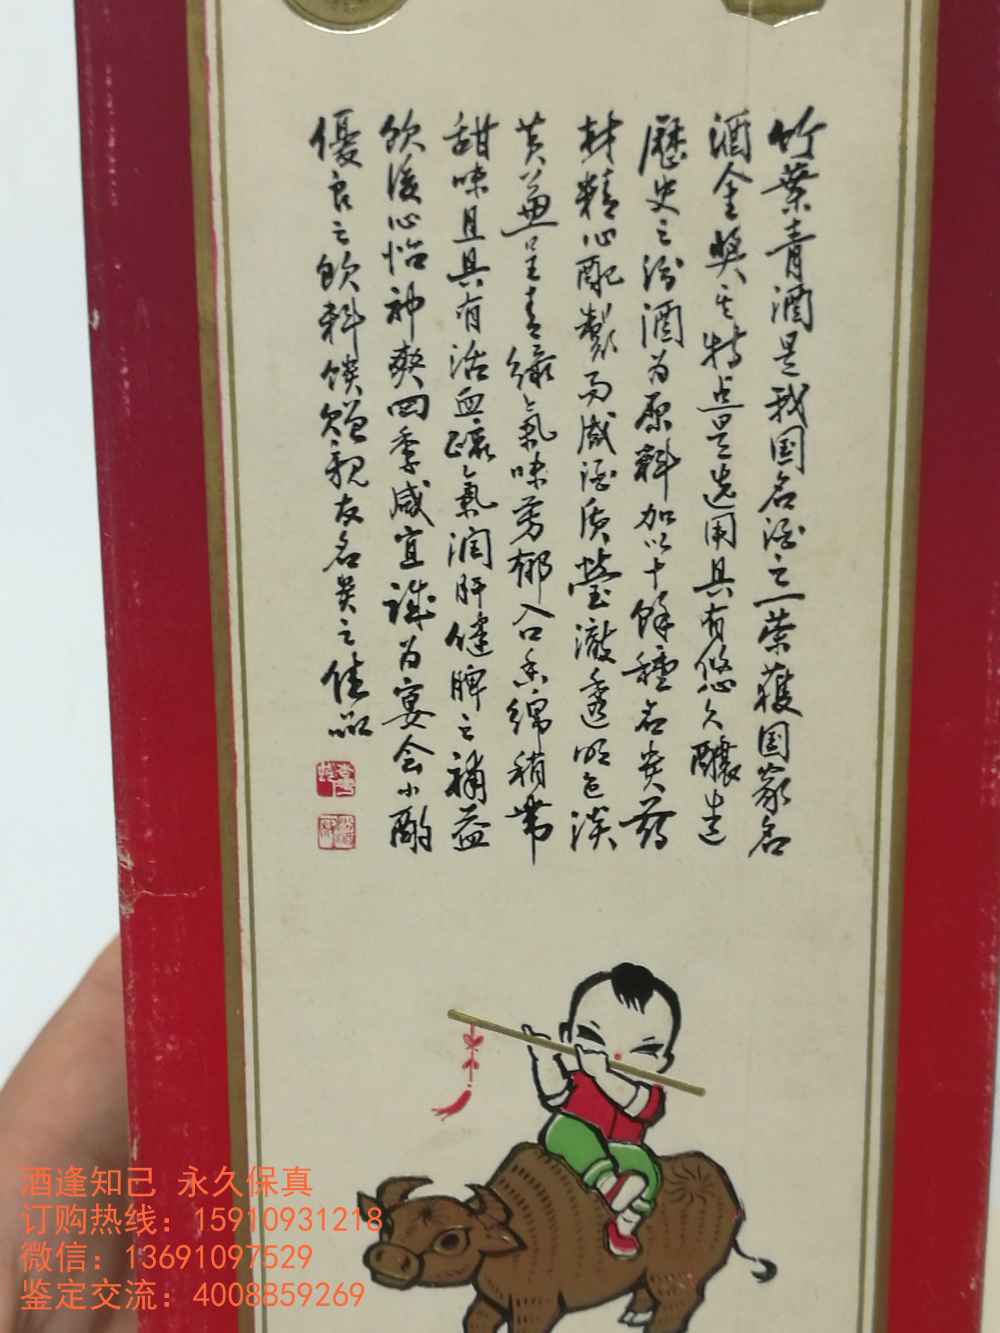 竹葉青酒是我国名酒之一荣獲国家名
酒金奖其特点是选用具有悠久釀造
歷史之汾酒为原料加以十餘種名贵药
材精心配製而成酒质莹澈透明色淡
黄兼呈青绿氣味芳郁入口香綿稍带
甜味且具有活血壤氣润肝健脾之補益
饮後心怡神爽四季咸宜誠为宴会小酌
優良之飲料馈赠親友名贵之佳品
酒逢知己 永久保真
订购热线：15910931218
微信：13691097529
鉴定交流：4008859269